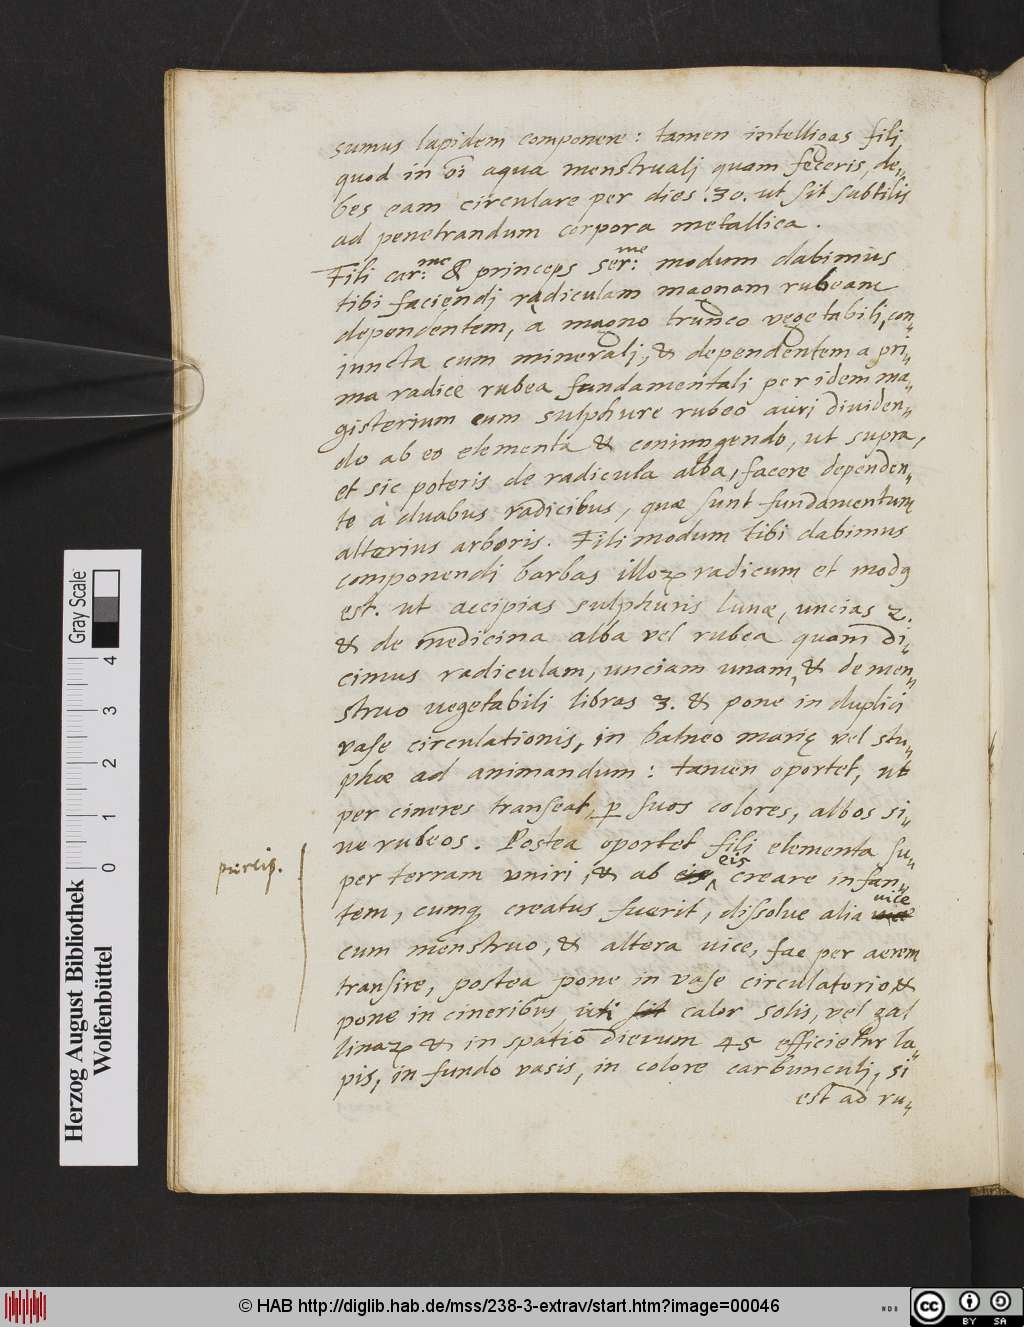 sumus lapidem componere: tamen intelligas fili
quod in õi aqua menstruali quam feceris, de„
bes eam circulare per dies .30. ut sit subtilis
ad penetrandum corpora metallica.
Fili car:me & princeps ser:me modum dabimus
tibi faciendj radiculam magnam rubeam
dependentem, à magno trunco vegetabili, con„
iuncta cum mineralj, & dependentem a pri„
ma radice rubea fundamentali per idem ma„
gisterium cum sulphure rubeo auri dividen„
do ab eo elementa & coniungendo, ut supra,
et sic poteris de radicula alba, facere dependen„
te à duabus radicibus, quæ sunt fundamentum
alterius arboris. Fili modum tibi dabimus
componendi barbas illoꝝ radicum et modꝯ
est. ut accipias sulphuris lunæ, uncias 2.
& de medicina alba vel rubea quam di„
cimus radiculam, unciam unam, & de men„
struo vegetabili libras 3. & pone in duplici
vase circulationis, in balneo marię vel stu„
phæ ad animandum: tamen oportet, ut
per cineres transeat, ꝑ suos colores, albos si„
ne rubeos. Postea oportet fili elementa su„
per terram uniri, & ab eis creare infan„
tem, cumqꝫ creatus fuerit, dissolue alia vice
cum menstruo, & altera uice, fac per aerem
transire, postea pone in vase circulatorio &
pone in cineribus, uti sit calor solis, vel gal
linaꝝ & in spatio dierum 45 efficietur la„
pis, in fundo vasis, in colore carbunculj, si
est ad ru„
Herzog August Bibliothek
Wolfenbüttel
0 1 2 3 4
Gray Scale
© HAB http://diglib.hab.de/mss/238-3-extrav/start.htm?image=00046
NDB
cc BY SA